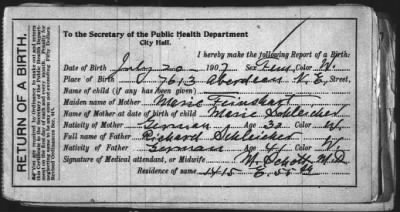 RETURN OF A BIRTH.
To the Secretary of the Public Health Department
City Hall.
I hereby make the following Report of a Birth:
Date of Birth July 20 1907 Sex Fem Color W.
Place of Birth 7613 Aberdeen N. E. Street,
Name of child (if any has been given)
Maiden name of Mother Marie Feinshart
Name of Mother at date of birth of child Marie Schleicher
Nativity of Mother German Age 30 Color W.
Full name of Father Richard Schleicher
Nativity of Father German Age 41 Color W.
Signature of Medical attendant, or Midwife W. Schott M.D
Residence of same 1415 E. 55 th